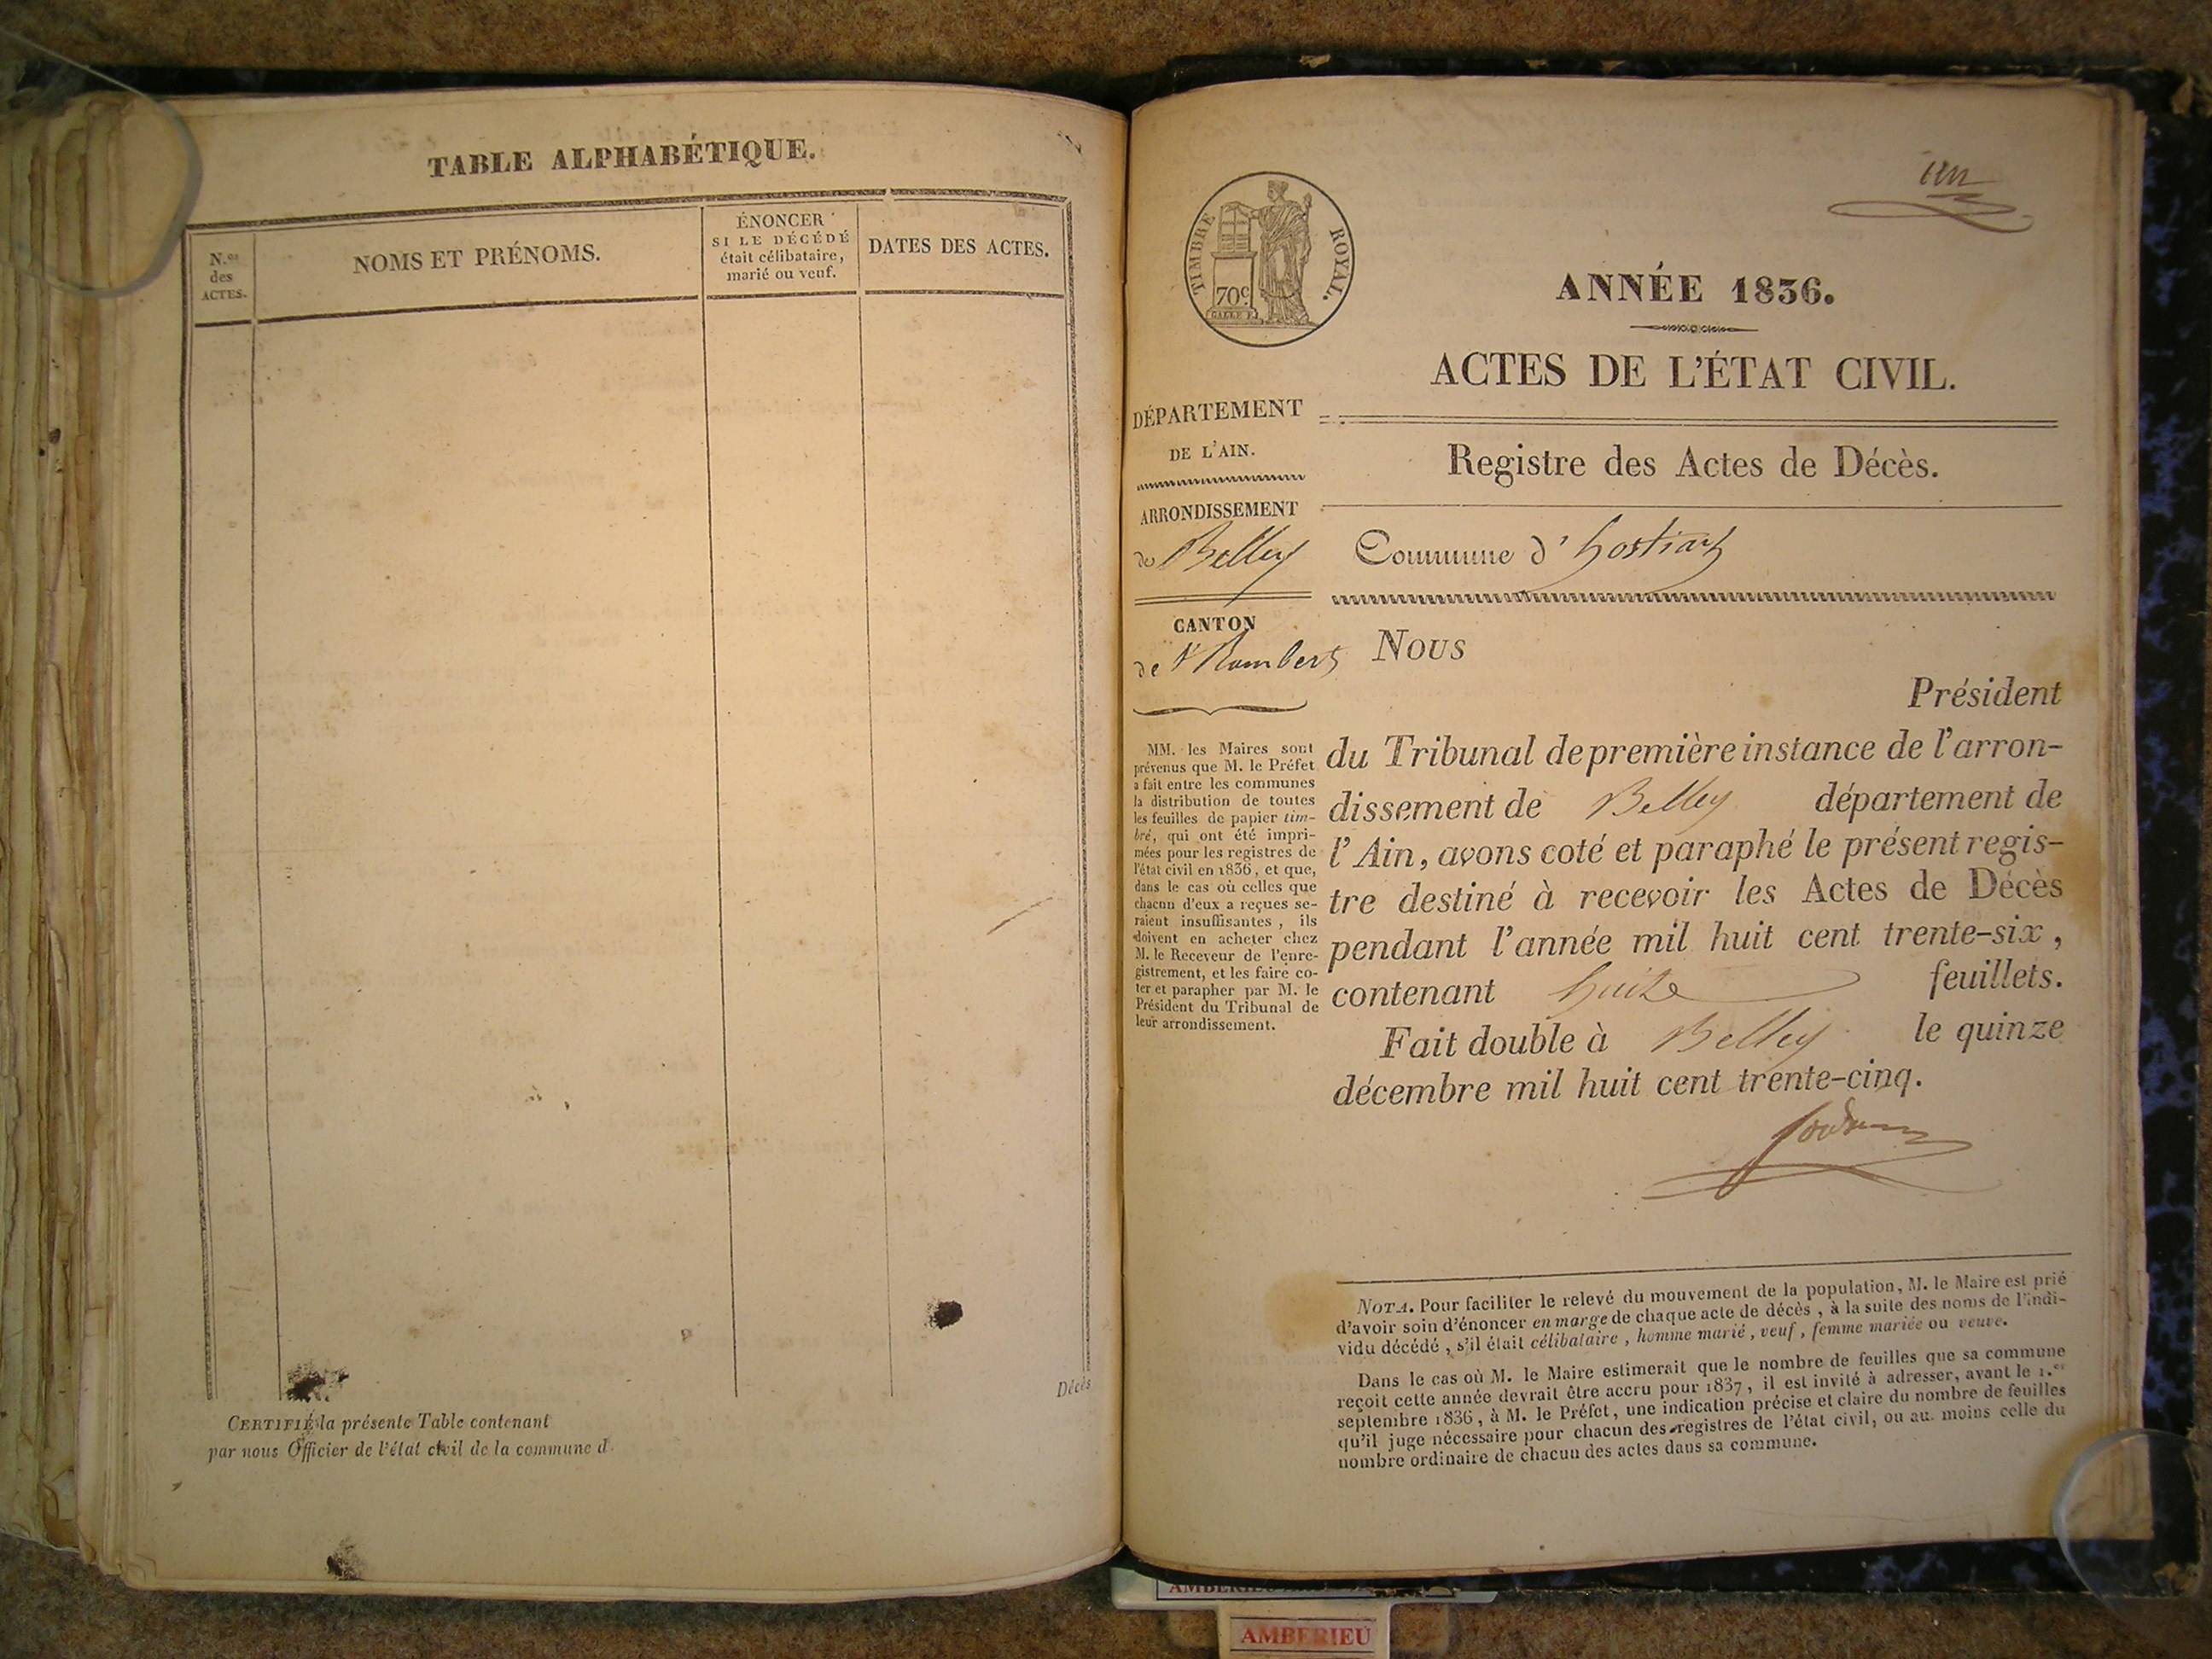 TABLE ALPHABÉTIQUE.
N.os
des
ACTES.
NOMS ET PRÉNOMS.
ÉNONCER
SI LE DÉCÉDÉ
était célibataire,
marié ou veuf.
DATES DES ACTES.
Décès
CERTIFIÉ la présente Table contenant
par nous Officier de l'état civil de la commune d
un
TIMBRE ROYAL.
70c
GALLE F.
ANNÉE 1836.
ACTES DE L'ÉTAT CIVIL.
DÉPARTEMENT
DE L'AIN.
Registre des Actes de Décès.
ARRONDISSEMENT
de Belley
Commune d'hostiaz
CANTON
de St Rambert
MM. les Maires sont
prévenus que M. le Préfet
a fait entre les communes
la distribution de toutes
les feuilles de papier tim-
bré, qui ont été impri-
mées pour les registres de
l'état civil en 1836, et que,
dans le cas où celles que
chacun d'eux a reçues se-
raient insuffisantes, ils
doivent en acheter chez
M. le Receveur de l'enre-
gistrement, et les faire co-
ter et parapher par M. le
Président du Tribunal de
leur arrondissement.
Nous
Président
du Tribunal de première instance de l'arron-
dissement de Belley département de
l'Ain, avons coté et paraphé le présent regis-
tre destiné à recevoir les Actes de Décès
pendant l'année mil huit cent trente-six,
contenant huit feuillets.
Fait double à Belley le quinze
décembre mil huit cent trente-cinq.
NOTA. Pour faciliter le relevé du mouvement de la population, M. le Maire est prié
d'avoir soin d'énoncer en marge de chaque acte de décès, à la suite des noms de l'indi-
vidu décédé, s'il était célibataire, homme marié, veuf, femme mariée ou veuve.
Dans le cas où M. le Maire estimerait que le nombre de feuilles que sa commune
reçoit cette année devrait être accru pour 1837, il est invité à adresser, avant le 1.er
septembre 1836, à M. le Préfet, une indication précise et claire du nombre de feuilles
qu'il juge nécessaire pour chacun des registres de l'état civil, ou au moins celle du
nombre ordinaire de chacun des actes dans sa commune.
AMBERIEU